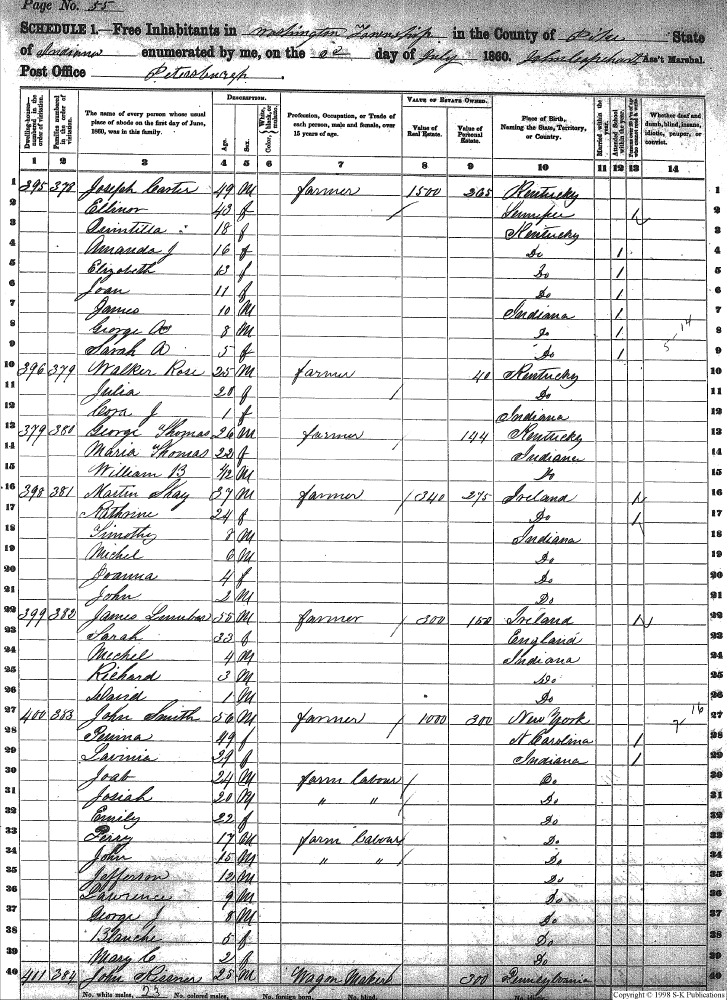 Page No. 55
SCHEDULE 1.—Free Inhabitants in Washington Township in the County of Pike State
of Indiana enumerated by me, on the day of July 1860. Ass't Marshal.
Post Office Petersburgh.
DESCRIPTION. VALUE OF ESTATE OWNED.
Dwelling-houses—numbered in the order of visitation. Families numbered in the order of visitation. The name of every person whose usual place of abode on the first day of June, 1860, was in this family. Age. Sex. Color, White, black, or mulatto. Profession, Occupation, or Trade of each person, male and female, over 15 years of age. Value of Real Estate. Value of Personal Estate. Place of Birth, Naming the State, Territory, or Country. Married within the year. Attended School within the year. Whether deaf and dumb, blind, insane, idiotic, pauper, or convict.
1 2 3 4 5 6 7 8 9 10 11 12 13 14
1 395 378 Joseph Carter 49 M farmer 1500 265 Kentucky 1
2 Ellinor 43 f / 2
3 18 f Kentucky 3
4 Amanda J 16 f Do 1 4
5 Elizabeth 13 f Do 1 5
6 Joan 11 f Do 1 6
7 James 10 M Indiana 1 7
8 George 8 M Do 1 8
9 Sarah A 5 f Do 1 9
5 14
10 396 379 Walker Rose 25 M farmer 40 Kentucky 10
11 Julia 20 f / Do 11
12 Cora J 1 f Indiana 12
13 379 380 George Thomas 26 M farmer 144 Kentucky 13
14 Maria Thomas 22 f Indiana 14
15 William B 1/2 M Do 15
16 398 381 Martin Shay 37 M farmer / 340 275 Ireland 1 16
17 Kathrine 24 f Do 1 17
18 Timothy 8 M Indiana 18
19 Michel 6 M Do 19
20 Joanna 4 f Do 20
21 John 2 M Do 21
22 399 382 James 55 M farmer / 300 150 Ireland 1 22
23 Sarah 33 f England 23
24 Mechel 4 M Indiana 24
25 Richard 3 M Do 25
26 David 1 M Do 26
27 400 383 John Smith 56 M farmer / 1000 300 New York 27
16
28 49 f N Carolina 1 28
29 Lavinia 29 f Indiana 1 29
30 Joab 24 M farm labour / Do 30
31 Josiah 20 M " " / Do 31
32 Emily 22 f Do 32
33 Perry 17 M farm labour / Do 33
34 John 15 M " " / Do 34
35 Jefferson 12 M Do 35
36 Lawrence 9 M Do 36
37 George J 8 M Do 37
38 Blanche 5 f Do 38
39 Mary C 2 f Do 39
40 401 384 John 25 M Wagon Maker 300 Pennsylvania 40
No. white males, 23 No. colored males, No. foreign born, No. blind,
Copyright © 1998 S-K Publications